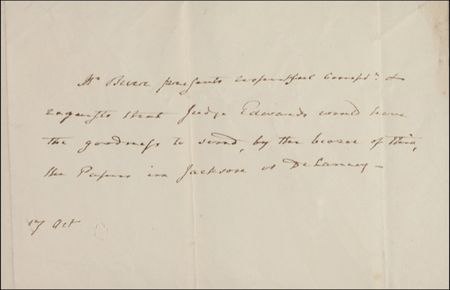 Mr Burr presents respectful compts. &
requests that Judge Edwards would have
the goodness to send, by the bearer of this,
the Papers in Jackson vs De Lancey —
17 Oct